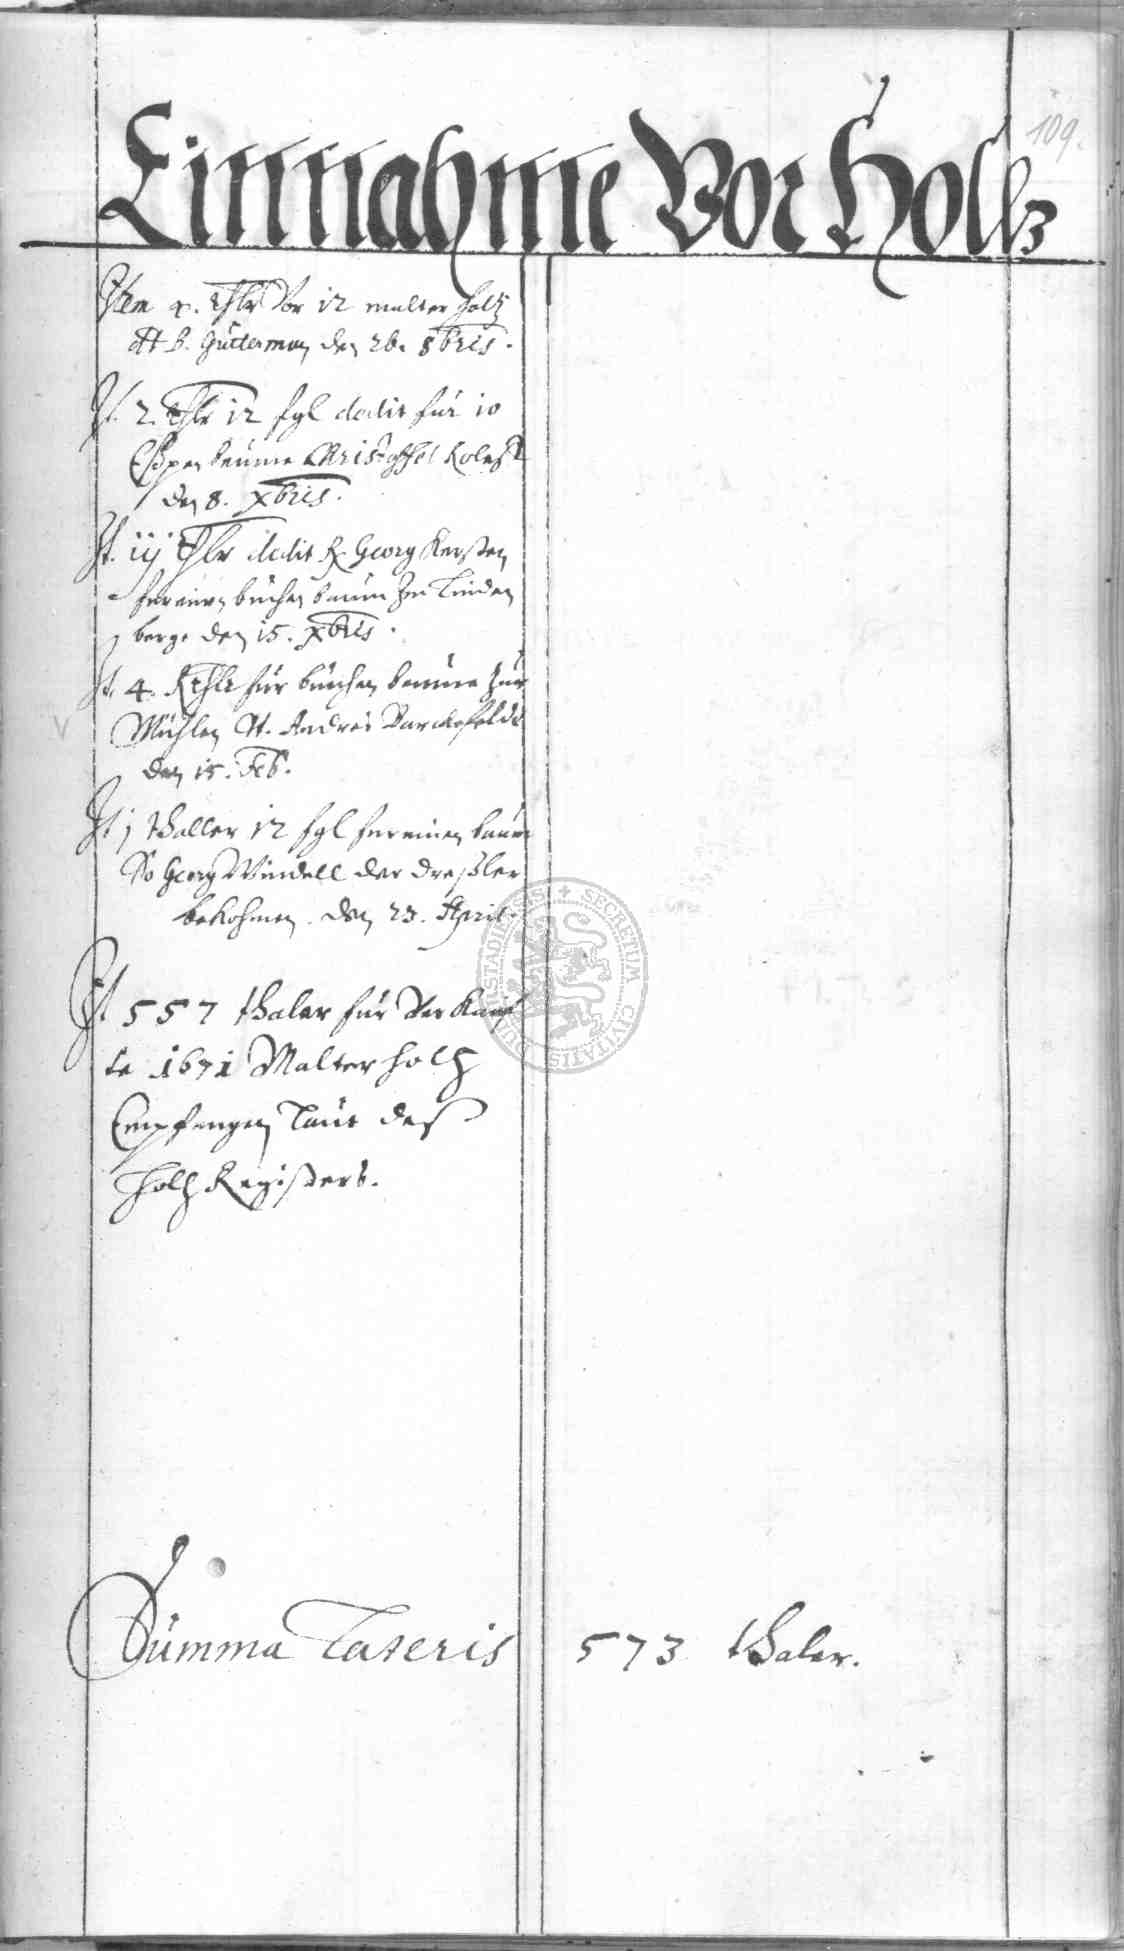 109.
Einnahme Vor Holtz
Item 4. thlr Vor 12 malter holtz
H. Gütterman den 26. 8bris.
It. 2. thlr 12 sgl dedit für 10
Espen beume Christoffel
den 8. xbris.
It. iij thlr dedit H. Georg Kersten
fur einen buchen baum Zm Linden
berge den 15. xbris.
It. 4. Rthlr für buchen beume Zur
Mühlen H. Andres Barckefeldt
den 15. Feb.
It j thaller 12 sgl fur einen baum
So Georg Windell der dreßler
bekohmen. den 23. April.
It 557 thaler für Verkauf
te 1671 Malter holtz
Empfangen Laut des
Holtz Registers.
Summa Lateris 573 thaler.
SECRETUM CIVITATIS DUDERSTADIENSIS